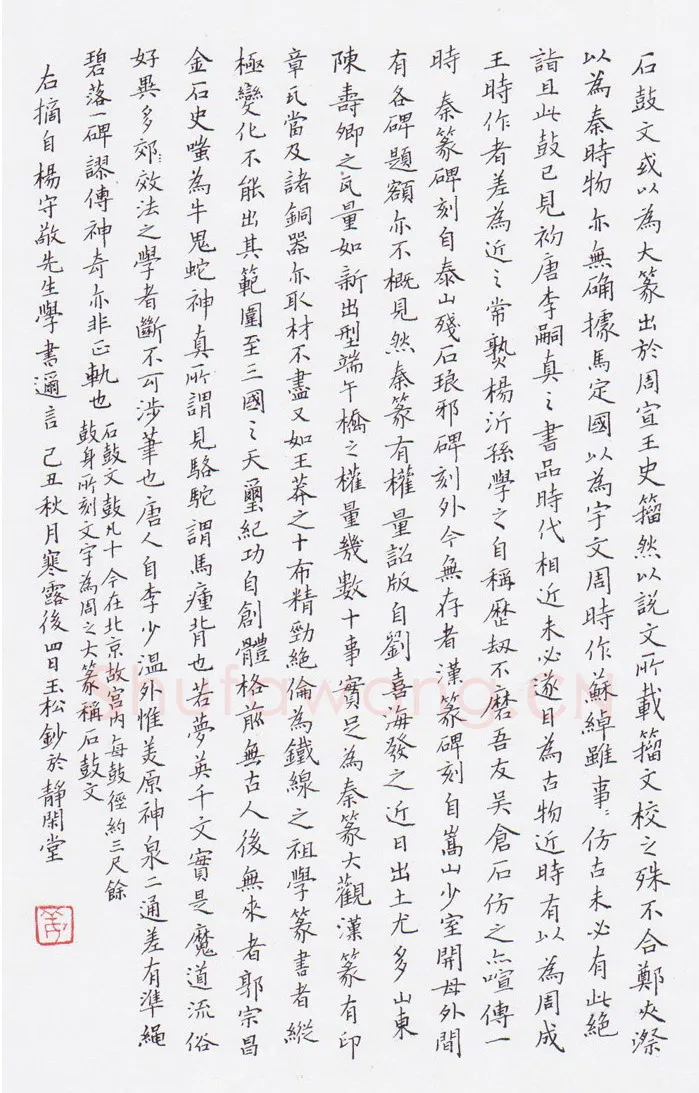 石鼓文或以為大篆出於周宣王史籀然以説文所載籀文校之殊不合鄭夾漈
以為秦時物亦無确據馬定國以為宇文周時作蘇綽雖事〻仿古未必有此絶
詣且此鼓已見初唐李嗣真之書品時代相近未必遂目為古物近時有以為周成
王時作者差為近之常熟楊沂孫學之自稱歷劫不磨吾友吴倉石仿之亦喧傳一
時 秦篆碑刻自泰山殘石琅邪碑刻外今無存者漢篆碑刻自嵩山少室開母外間
有各碑題額亦不概見然秦篆有權量詔版自劉喜海發之近日出土尤多山東
陳壽卿之瓦量如新出型端午橋之權量幾數十事實足為秦篆大觀漢篆有印
章瓦當及諸銅器亦取材不盡又如王莽之十布精勁絶倫為鐵線之祖學篆書者縱
極變化不能出其範圍至三國之天璽紀功自創體格前無古人後無來者郭宗昌
金石史嗤為牛鬼蛇神真所謂見駱駝謂馬瘇背也若夢英千文實是魔道流俗
好異多郊〻效法之學者斷不可涉筆也唐人自李少温外惟美原神泉二通差有準繩
碧落一碑謬傳神奇亦非正軌也
石鼓文鼓凡十今在北京故宫内每鼓徑約三尺餘
鼓身所刻文字為周之大篆稱石鼓文
右摘自楊守敬先生學書邇言 己丑秋月寒露後四日玉松鈔於靜閑堂
Shufawang.CN